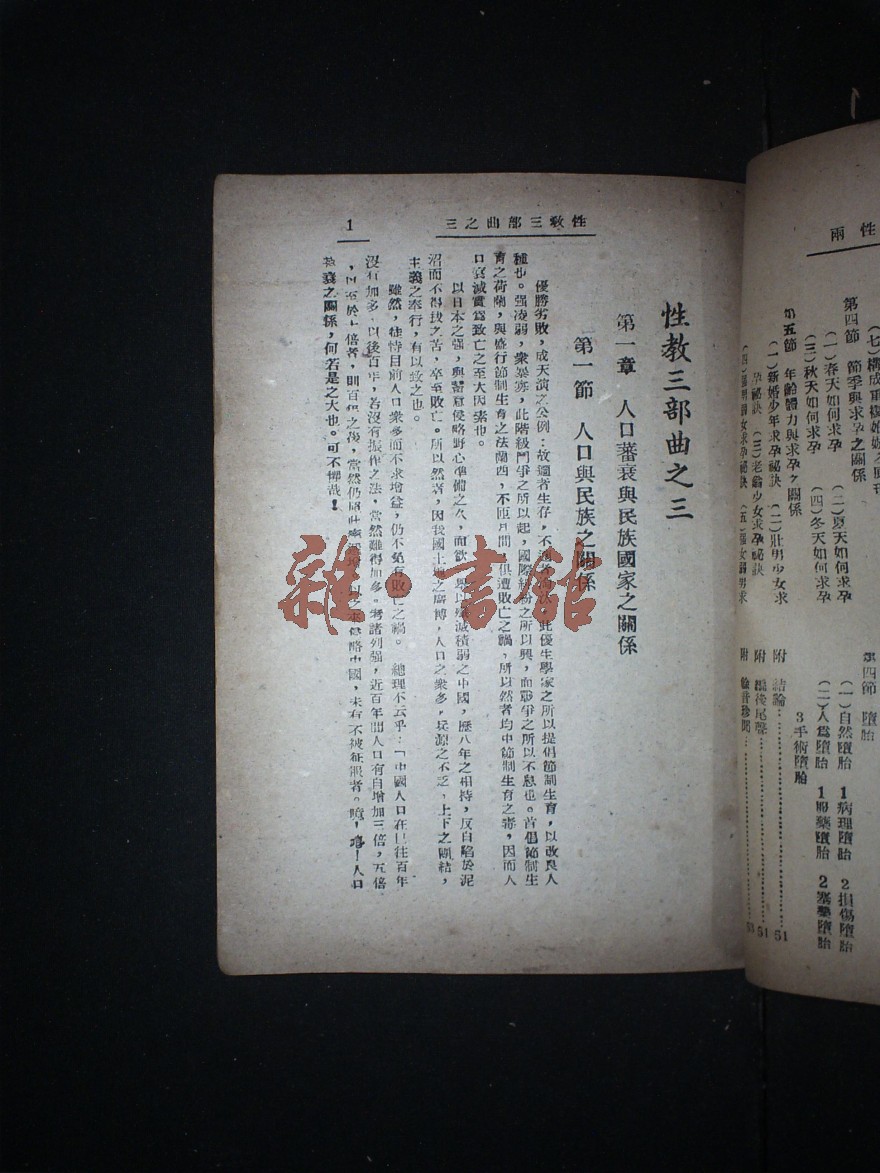 兩性
（七）構成重複
第四節　節季與求孕之關係
（一）春天如何求孕　（二）夏天如何求孕
（三）秋天如何求孕　（四）冬天如何求孕
第五節　年齡體力與求孕之關係
（一）新婚少年求孕祕訣　（二）壯男少女求
孕祕訣　（三）老翁少女求孕祕訣
女求孕祕訣　（五）强女弱男求
第四節　墮胎
（一）自然墮胎　1病理墮胎　2損傷墮胎
（二）人爲墮胎　1服藥墮胎　2塞藥墮胎
3手術墮胎
附　結論⋯⋯51
附　尾聲⋯⋯51
附
性敎三部曲之三
1
性教三部曲之三
第一章　人口蕃衰與民族國家之關係
第一節　人口與民族之關係
優勝劣敗，成天演之公例：故適者生存，不適者，此優生學家之所以提倡節制生育，以改良人
種也。强凌弱，衆暴寡，此階級鬥爭之所以起，國際紛之所以興，而戰爭之所以不息也。首倡節制生
育之荷蘭，與盛行節制生育之法蘭西，不匝月間，俱遭敗亡之禍，所以然者均中節制生育之毒，因而人
口衰減實爲致亡之至大因素也。
以日本之强，與蓄意侵略野心準備之久，而欲滅積弱之中國，歷八年之相持，反自陷於泥
沼而不得拔之苦，卒至敗亡。所以然者，因我國土地之廣博，人口之衆多，兵源之不乏，上下之團結，
主義之奉行，有以致之也。
雖然，徒恃目前人口衆多而不求增益，仍不免有敗亡之禍。　總理不云乎：「中國人口在已往百年
沒有加多，以後百年，若沒有振作之法，當然難得加多。考諸列强，近百年間人口有自增加三倍，五倍
，至於十倍者，則百年之後，當然仍，以之來侵略中國，未有不被征服者。噫，嘻！人口
衰之關係，何若是之大也。可不懼哉！
雜·書館